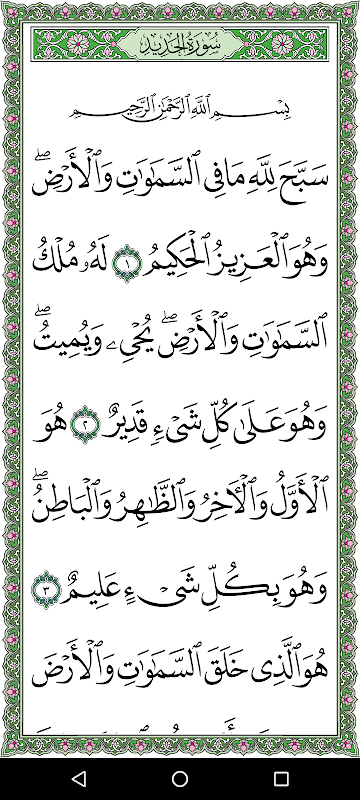 سُورَةُ الحَدِيدِ
بِسْمِ ٱللَّهِ ٱلرَّحْمَٰنِ ٱلرَّحِيمِ
سَبَّحَ لِلَّهِ مَا فِي ٱلسَّمَٰوَٰتِ وَٱلْأَرْضِۖ
وَهُوَ ٱلْعَزِيزُ ٱلْحَكِيمُ ١ لَهُۥ مُلْكُ
ٱلسَّمَٰوَٰتِ وَٱلْأَرْضِۖ يُحْيِۦ وَيُمِيتُۖ
وَهُوَ عَلَىٰ كُلِّ شَيْءٍ قَدِيرٌ ٢ هُوَ
ٱلْأَوَّلُ وَٱلْأٓخِرُ وَٱلظَّٰهِرُ وَٱلْبَاطِنُۖ
وَهُوَ بِكُلِّ شَيْءٍ عَلِيمٌ ٣
هُوَ ٱلَّذِي خَلَقَ ٱلسَّمَٰوَٰتِ وَٱلْأَرْضَ